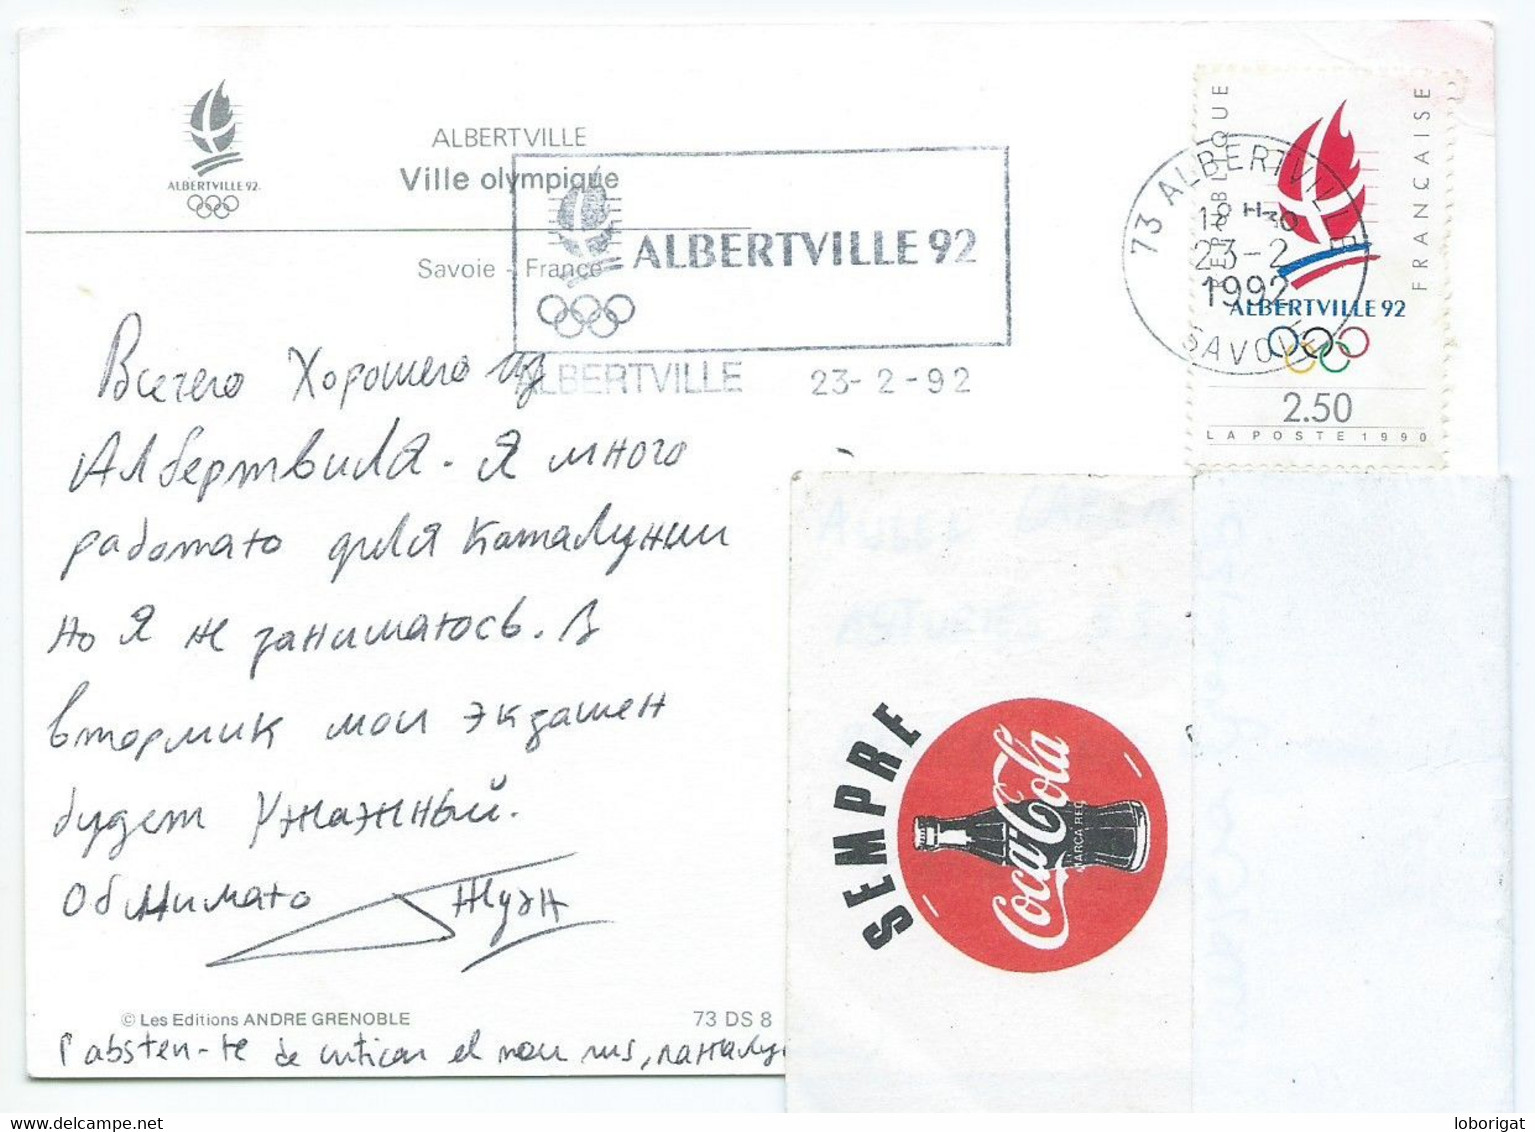 ALBERTVILLE 92.
ALBERTVILLE
Ville olympique
Savoie - France
ALBERTVILLE 92
ALBERTVILLE 23-2-92
73 ALBERTVILLE
18 H 30
23-2
1992
SAVOIE
REPUBLIQUE
FRANÇAISE
ALBERTVILLE 92
2.50
LA POSTE 1990
Всечего Хорошего из
Албертвиля. Я много
работаю для Каталунии
но Я не занимаюсь. В
вторник мои экзамен
будет Ужажный.
Обнимаю Жуан
© Les Editions ANDRE GRENOBLE 73 DS 8
I absten-te de criticar el meu rus,
SEMPRE
Coca-Cola
MARCA REG
loborigat